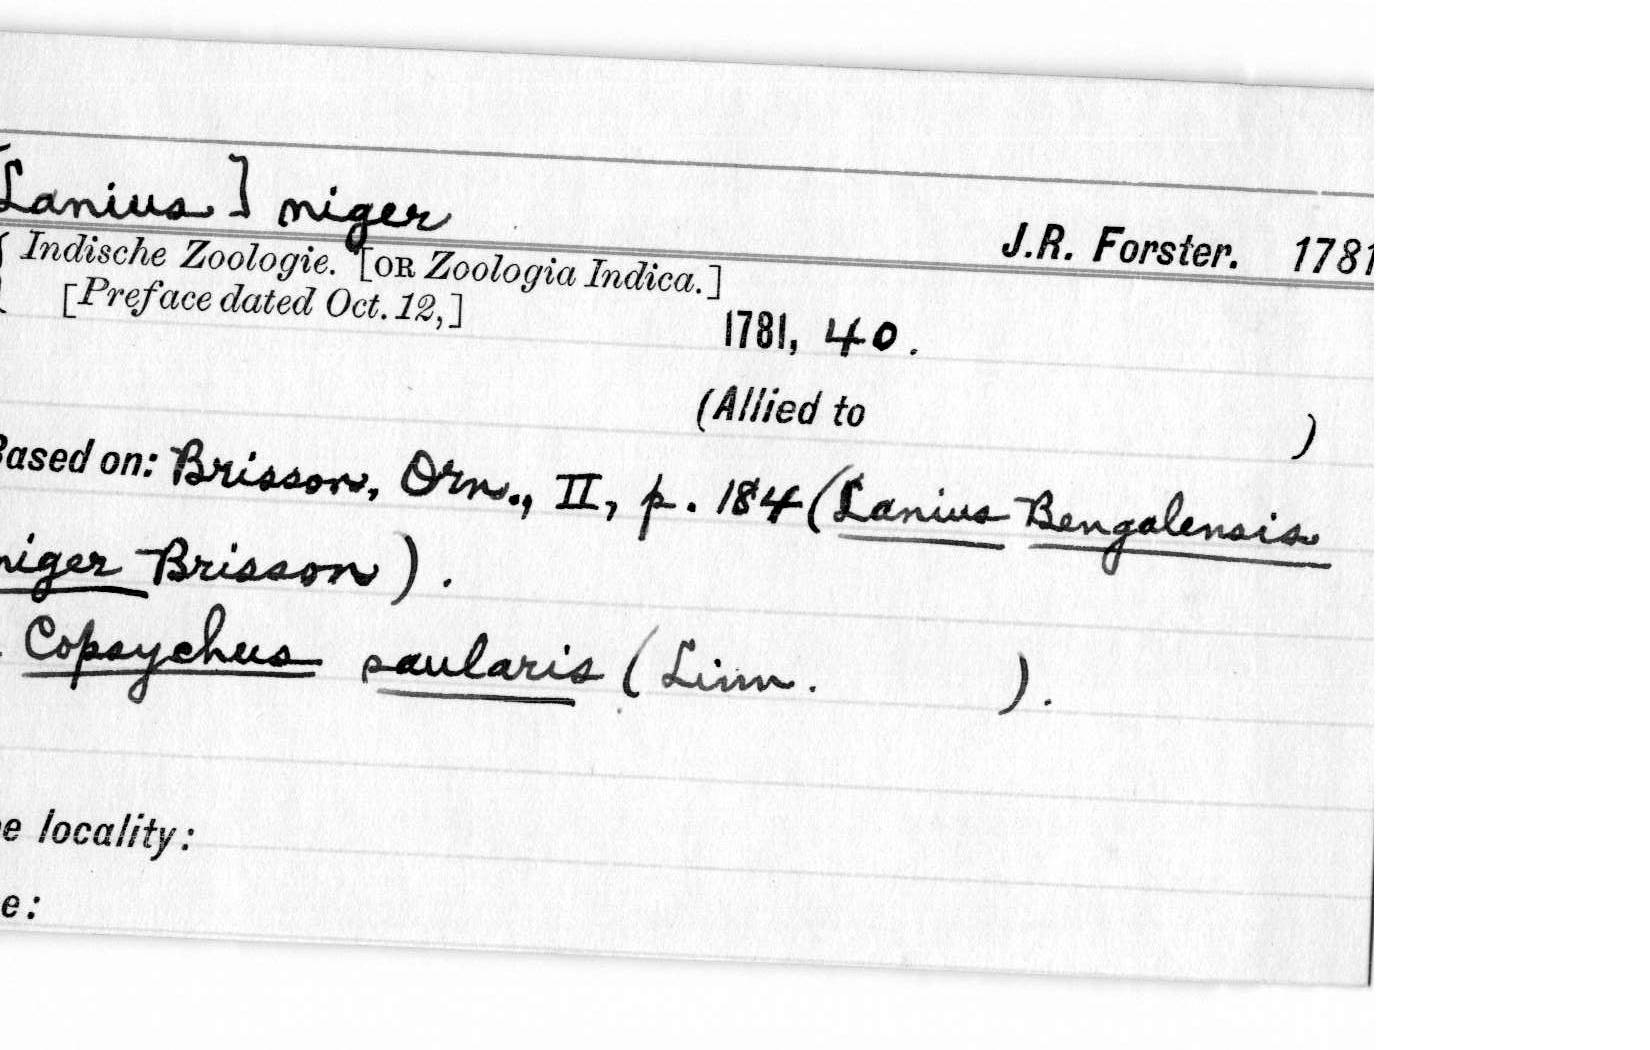 [Lanius] niger
J.R. Forster. 1781
{ Indische Zoologie. [OR Zoologia Indica.]
[Preface dated Oct. 12,]
1781, 40.
(Allied to )
Based on: Brisson, Orn., II, p. 184 (Lanius Bengalensis
niger Brisson).
. Copsychus saularis (Linn. ).
e locality:
e: